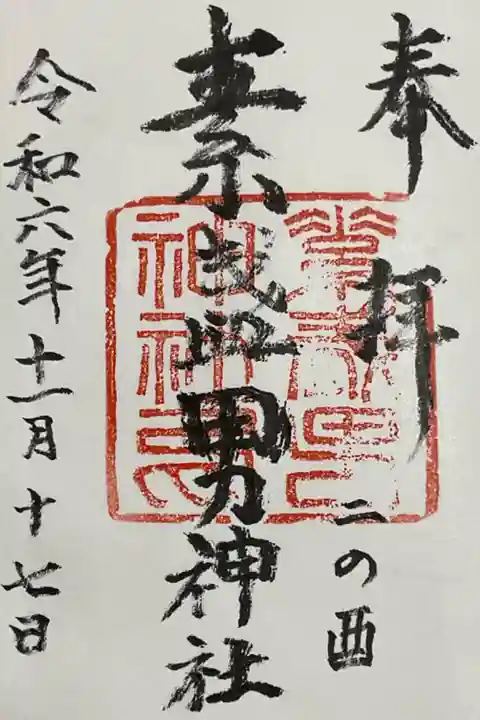 奉拝 二の酉
素盞男神社
令和六年十一月十七日